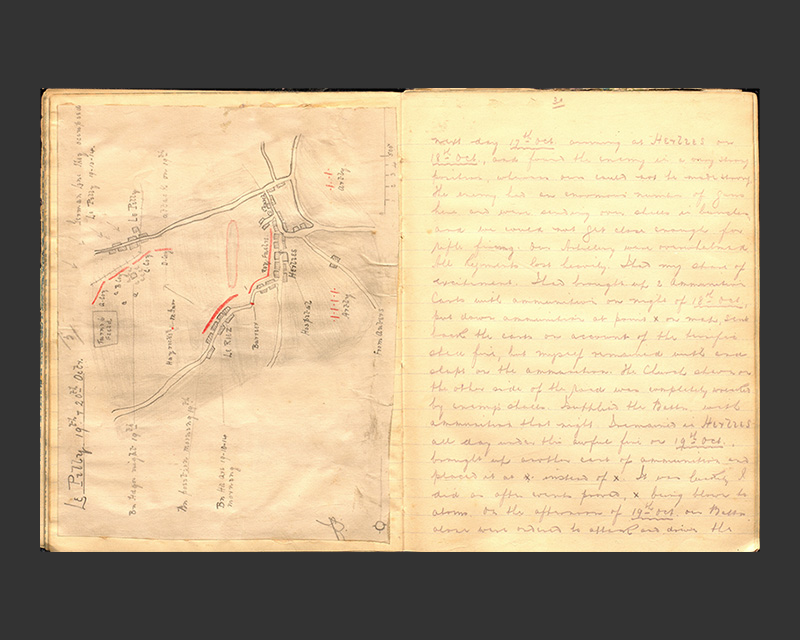 Le Pilly 19th & 20th Octr.
Le Pilly 19.10.14
Le Pilly
attack on 19th
2 Coy
Turnip
Field
Herlies
Le Riez
Barrier
Hospital
Artly
Artly
Fromelles
Bn HQ on 19.10.14
morning
31
next day 17th Oct. arriving at Herlies on
18th Oct., and found the enemy in a very strong
position, whereas ours could not be made strong
The enemy had an enormous number of guns
here, and were sending over shells in bunches
and we would not get close enough for
rifle firing. Our artillery were outnumbered
All Regiments lost heavily. I had my share of
excitement. I had brought up 2 ammunition
carts with ammunition on night of 18th Oct,
put down ammunition at point x on map, sent
back the carts on account of the terrific
shell fire, but myself remained with and
slept on the ammunition. The Church shown on
the other side of the road was completely wrecked
by enemy's shells. Supplied the Battn. with
ammunition that night. Remained in Herlies
all day under this awful fire on 19th Oct.,
brought up another cart of ammunition and
placed it at x instead of x. It was lucky I
did as after events proved, x being blown to
atoms. On the afternoon of 19th Oct. our Battn.
alone were ordered to attack and drive the